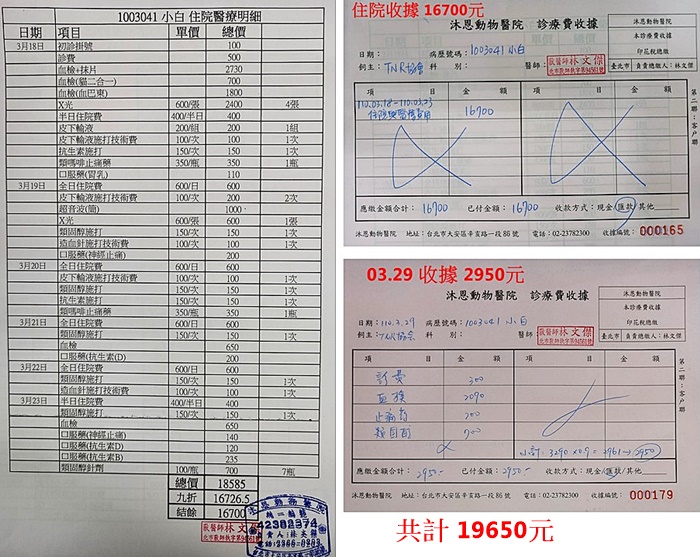 1003041 小白 住院醫療明細
日期 項目 單價 總價
3月18日 初診掛號 100
診費 500
血檢+抹片 2730
血檢(貓二合一) 700
血檢(血巴東) 1800
X光 600/張 2400 4張
半日住院費 400/半日 400
皮下輸液 200/組 200 1組
皮下輸液施打技術費 100/次 100 1次
抗生素施打 150/次 150 1次
類嗎啡止痛藥 350/瓶 350 1瓶
口服藥(胃乳) 110
3月19日 全日住院費 600/日 600
皮下輸液施打技術費 100/次 200 2次
超音波(簡) 1000
X光 600/張 600 1張
類固醇施打 150/次 150 1次
造血針施打技術費 100/次 100 1次
口服藥(神經止痛) 200
3月20日 全日住院費 600/日 600
皮下輸液施打技術費 100/次 100 1次
類固醇施打 150/次 150 1次
抗生素施打 150/次 150 1次
類嗎啡止痛藥 350/瓶 350 1瓶
3月21日 全日住院費 600/日 600
類固醇施打 150/次 150 1次
血檢 650
口服藥(抗生素D) 200
3月22日 全日住院費 600/日 600
類固醇施打 150/次 150 1次
造血針施打技術費 100/次 100 1次
3月23日 半日住院費 400/半日 400
類固醇施打 150/次 150 1次
血檢 650
口服藥(神經止痛) 140
口服藥(抗生素D) 120
口服藥(抗生素B) 235
類固醇針劑 100/瓶 700 7瓶
總價 18585
九折 16726.5
結餘 16700
獸醫師林文傑
沐恩動物醫院
統一編號
42382374
住院收據 16700元
沐恩動物醫院 診療費收據
沐恩動物醫院
本診療費收據
印花稅總繳
臺北市 負責總繳人：林文傑
日期： 病歷號碼：1003041 小白
飼主：TNR協會 科別： 醫師：獸醫師林文傑
項 目 金 額 項 目 金 額
110.03.18-110.03.23
住院醫療費用 16700
第二聯：客戶聯
應繳金額合計：16700 已付金額：16700 收款方式：現金/匯款/其他
沐恩動物醫院 地址：台北市大安區辛亥路一段86號 電話：02-23782300 收據編號：000165
03.29 收據 2950元
沐恩動物醫院 診療費收據
沐恩動物醫院
本診療費收據
印花稅總繳
臺北市 負責總繳人：林文傑
日期：110.3.29 病歷號碼：1003041 小白
飼主：TNR協會 科別： 醫師 獸醫師林文傑
項 目 金 額 項 目 金 額
診費 300
血檢 2090
止痛針 200
類固醇 700
小計：3290×0.9=2961→2950
第二聯：客戶聯
應繳金額合計：2950- 已付金額：2950- 收款方式：現金/匯款/其他
沐恩動物醫院 地址：台北市大安區辛亥路一段86號 電話：02-23782300 收據編號：000179
共計 19650元